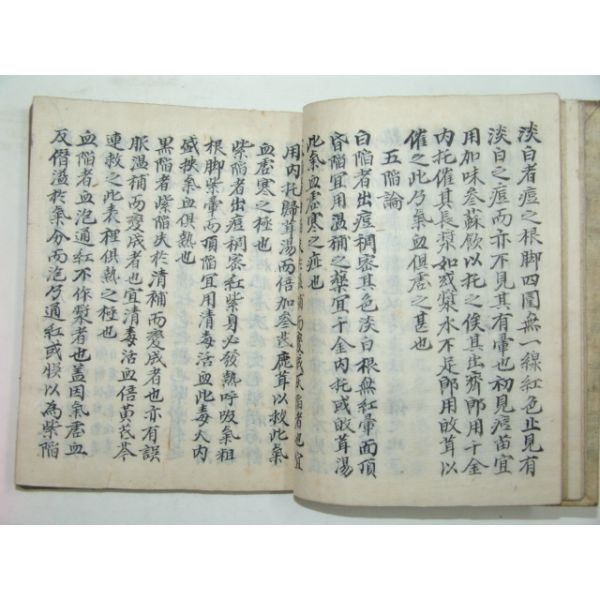 淡白者痘之根脚四圍無一線紅色止見有
淡白之痘而亦不見其有暈也初見痘苗宜
用加味參蘇飲以托之俟其出齊即用千金
內托催其長漿如或漿水不足即用敗茸以
催之此乃氣血俱虛之甚也
五陷論
白陷者出痘稠密其色淡白根無紅暈而頂
皆陷宜用溫補之藥宜千金內托或敗茸湯
此氣血虛寒之症也
補而變成灰陷者也宜
用內托歸茸湯而倍加參芪鹿茸以救此氣
血虛寒之極也
紫陷者出痘稠密紅紫身必發熱呼吸氣粗
根脚紫暈而頂陷宜用清毒活血此毒大內
盛挾氣血俱熱也
黑陷者紫陷失於清補而變成者也亦有誤
服溫補而變成者也宜清毒活血倍黃芪芩
連救之此表裡俱熱之極也
血陷者血泡通紅不作漿者也蓋因氣虛血
反僭溢於氣分而泡乃通紅或悞以為紫陷